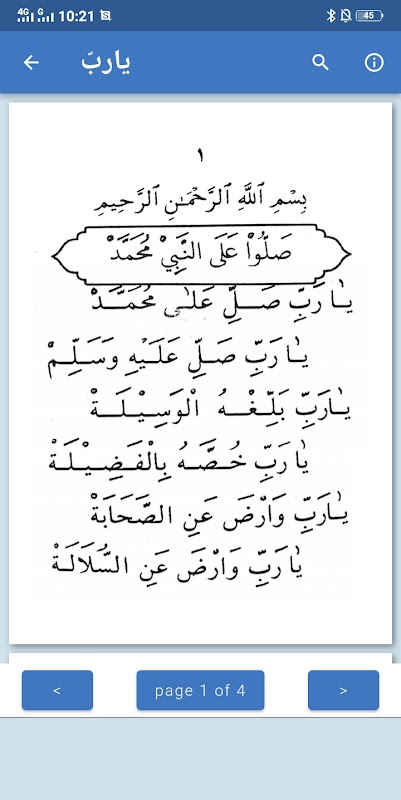 4G G 10:21 45
ياربّ
١
بِسْمِ ٱللَّهِ ٱلرَّحْمَـٰنِ ٱلرَّحِيمِ
صَلُّوْا عَلَى النَّبِيْ مُحَمَّدْ
يَارَبِّ صَـلِّ عَلٰى مُحَمَّـدْ
يَارَبِّ صَلِّ عَلَيْهِ وَسَـلِّـمْ
يَارَبِّ بَلِّـغْـهُ الْوَسِـيْـلَـةْ
يَارَبِّ خُـصَّـهُ بِالْفَضِـيْـلَـةْ
يَارَبِّ وَارْضَ عَنِ الصَّحَابَةْ
يَارَبِّ وَارْضَ عَنِ السُّلَالَـةْ
< page 1 of 4 >